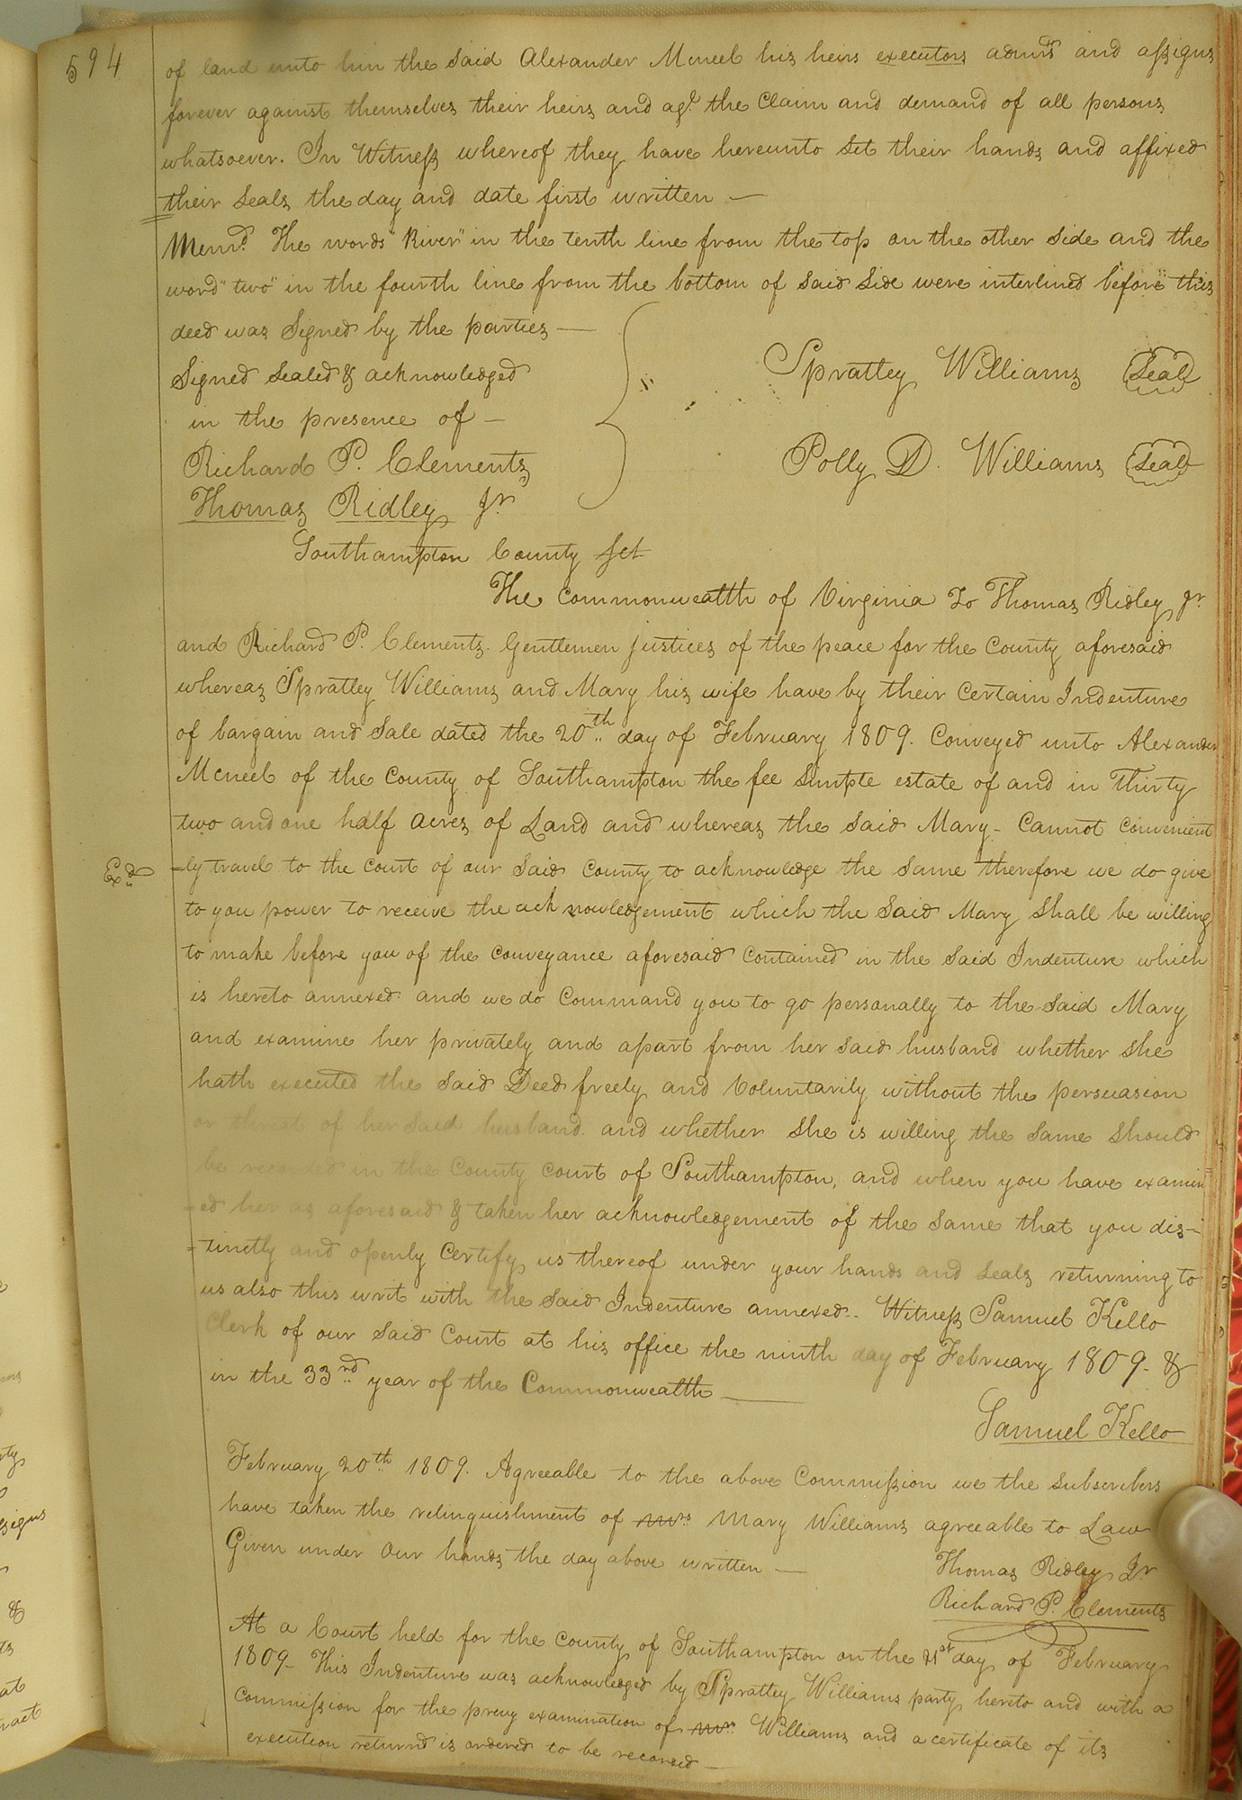 594
of land unto him the said Alexander Mcneel his heirs executors admrs and assigns
forever against themselves their heirs and agt the Claim and demand of all persons
whatsoever. In Witness whereof they have hereunto set their hands and affixed
their seals the day and date first written —
Memo. The words "River" in the tenth line from the top on the other side and the
word "two" in the fourth line from the bottom of said side were interlined before this
deed was signed by the parties —
Signed sealed & acknowledged
in the presence of —
Richard P. Clements
Thomas Ridley Jr
Spratley Williams Seal
Polly D. Williams Seal
Southampton County Sct
The Commonwealth of Virginia To Thomas Ridley Jr
and Richard P. Clements. Gentlemen justices of the peace for the County aforesaid
whereas Spratley Williams and Mary his wife have by their certain Indenture
of bargain and sale dated the 20th day of February 1809. Conveyed unto Alexander
Mcneel of the County of Southampton the fee simple estate of and in Thirty
two and one half acres of Land and whereas the said Mary - Cannot convenient
Exd
-ly travel to the court of our said County to acknowledge the same therefore we do give
to you power to receive the acknowledgement which the said Mary shall be willing
to make before you of the conveyance aforesaid contained in the said Indenture which
is hereto annexed and we do command you to go personally to the said Mary
and examine her privately and apart from her said husband whether she
hath executed the said Deed freely and Voluntarily without the persuasion
or threat of her said husband and whether she is willing the same should
be recorded in the County court of Southampton, and when you have examin
-ed her as aforesaid & taken her acknowledgement of the same that you dis-
-tinctly and openly certify us thereof under your hands and seals returning to
us also this writ with the said Indenture annexed.. Witness Samuel Kello
Clerk of our said court at his office the ninth day of February 1809 - &
in the 33rd year of the Commonwealth —
Samuel Kello
February 20th 1809. Agreeable to the above Commission we the subscribers
have taken the relinquishment of mrs Mary Williams agreeable to Law
Given under Our hands the day above written —
Thomas Ridley Jr
Richard P. Clements
At a Court held for the County of Southampton on the 21st day of February
1809 - This Indenture was acknowledged by Spratley Williams party hereto and with a
commission for the privy examination of mrs Williams and a certificate of its
execution returnd is ordered to be recorded —